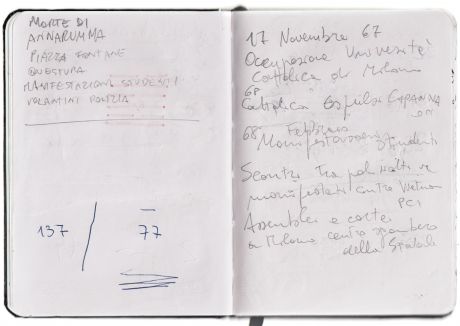 MORTE DI
ANNARUMMA
PIAZZA FONTANE
QUESTURA
MANIFESTAZIONI STUDENTI
VOLANTINI POLIZIA
137
77
17 Novembre 67
Occupazione Università
Cattolica di Milano
68
Cattolica Espulsi CAPANNA
68 Febbraio
Manifestazioni Studenti
Scontri tra poliziotti e
manifestanti contro Vietnam
PCI
Assemblee e cortei
a Milano contro sgombero
della Statale